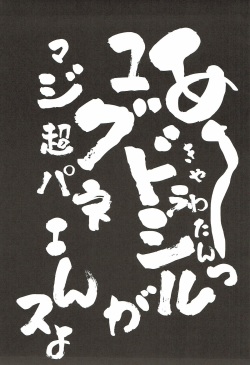 あ〜
きゃうわたんっ
ユグドミルが
マジ超パネ
エんスよ